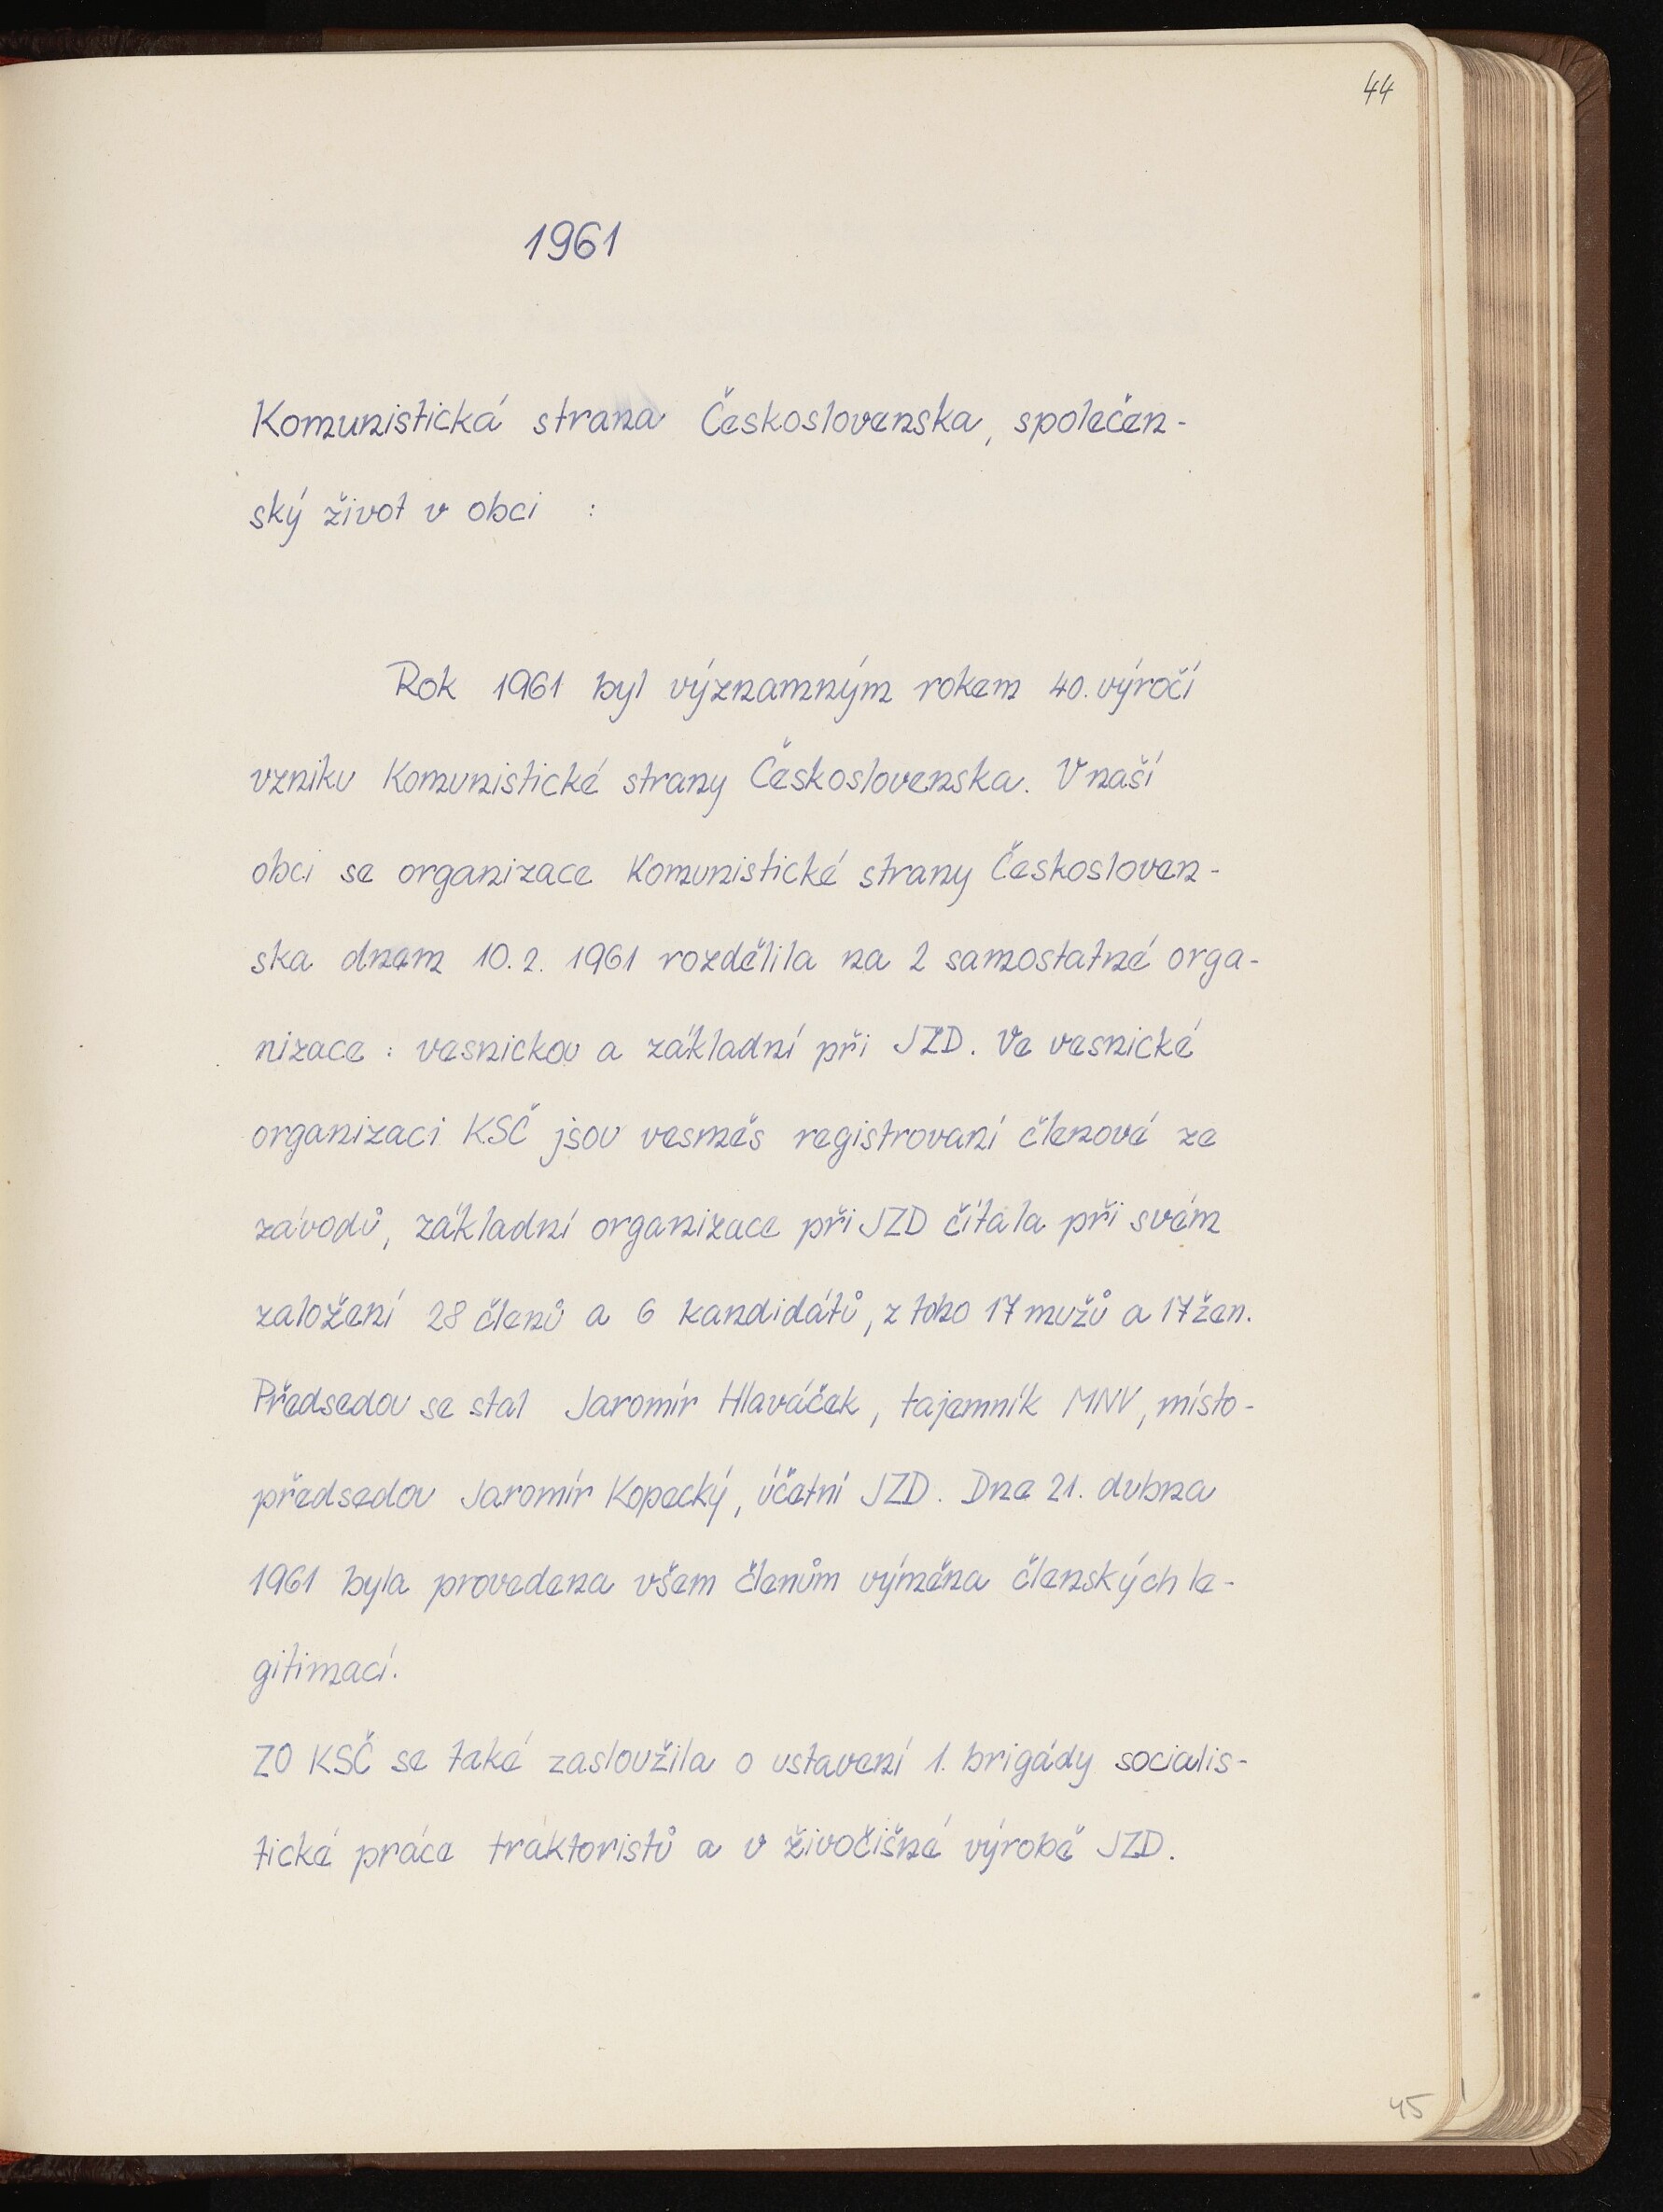 44
1961
Komunistická strana Československa, společen-
ský život v obci :
Rok 1961 byl významným rokem 40. výročí
vzniku Komunistické strany Československa. V naší
obci se organizace Komunistické strany Českosloven-
ska dnem 10. 2. 1961 rozdělila na 2 samostatné orga-
nizace : vesnickou a základní při JZD. Ve vesnické
organizaci KSČ jsou vesměs registrovaní členové ze
závodů, základní organizace při JZD čítala při svém
založení 28 členů a 6 kandidátů, z toho 17 mužů a 17 žen.
Předsedou se stal Jaromír Hlaváček, tajemník MNV, místo-
předsedou Jaromír Kopecký, účetní JZD. Dne 21. dubna
1961 byla provedena všem členům výměna členských le-
gitimací.
ZO KSČ se také zasloužila o ustavení 1. brigády socialis-
tické práce traktoristů a v živočišné výrobě JZD.
45